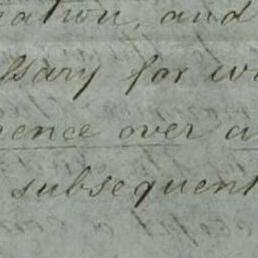 ation, and
ssary for w
ence over a
subsequent